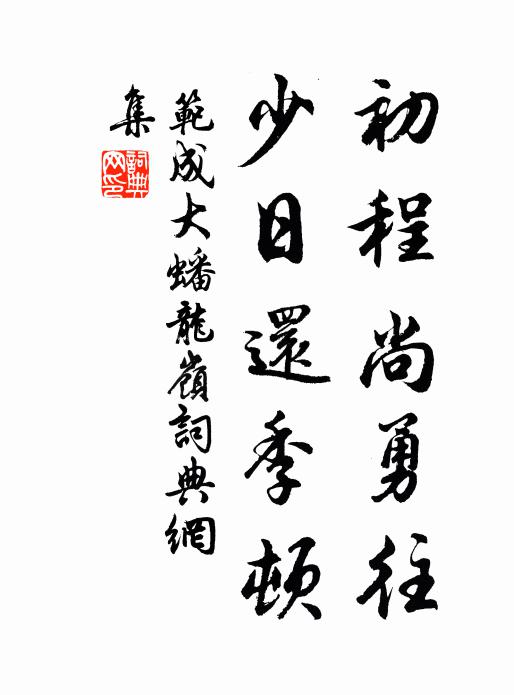 初程尚勇往
少日還季頓
範成大蟠龍嶺詞典網
集
詞典网印